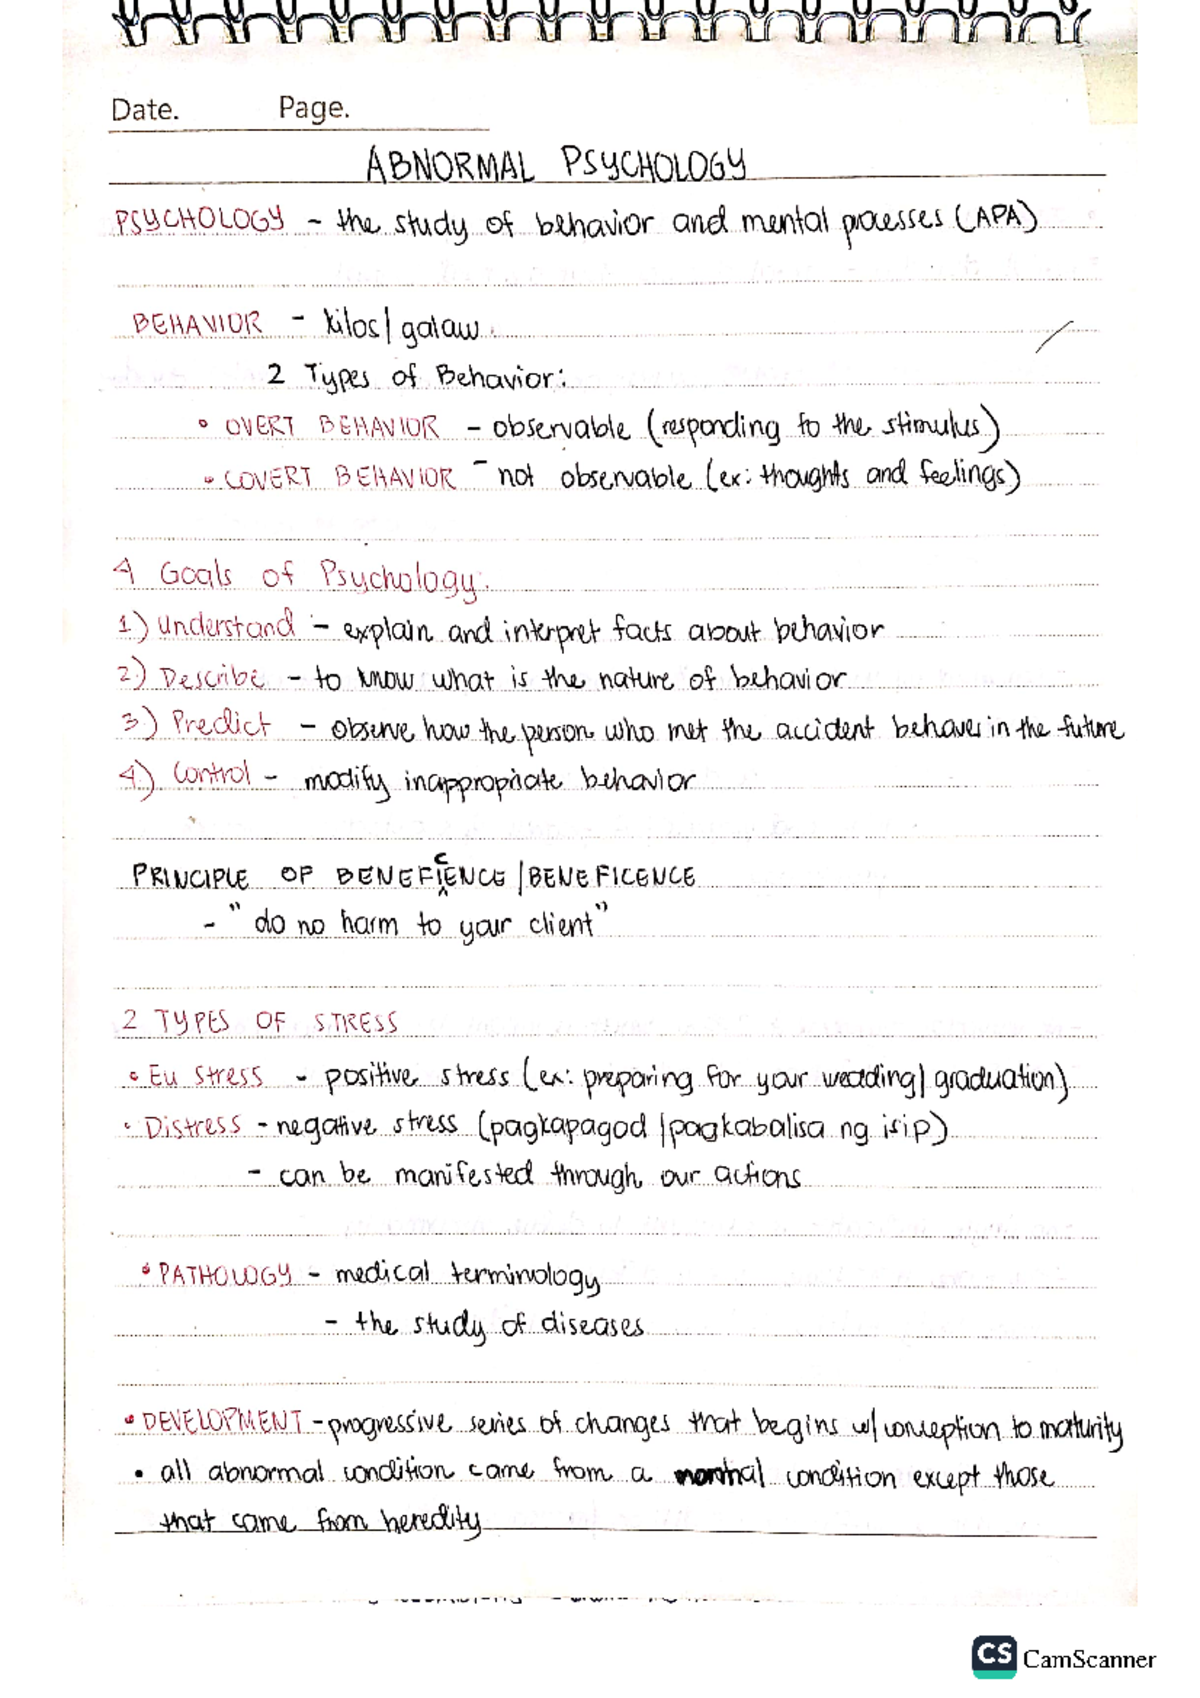 Date. Page.
ABNORMAL PSYCHOLOGY
PSYCHOLOGY - the study of behavior and mental processes (APA)
BEHAVIOR - kilos/galaw.
2 Types of Behavior:
• OVERT BEHAVIOR - observable (responding to the stimulus)
• COVERT BEHAVIOR - not observable (ex: thoughts and feelings)
4 Goals of Psychology:
1.) Understand - explain and interpret facts about behavior
2.) Describe - to know what is the nature of behavior
3.) Predict - observe how the person who met the accident behaves in the future
4.) Control - modify inappropriate behavior
PRINCIPLE OF BENEFICENCE/BENEFICENCE
- "do no harm to your client"
2 TYPES OF STRESS
• Eu stress - positive stress (ex: preparing for your wedding/graduation)
• Distress - negative stress (pagkapagod/pagkabalisa ng isip)
- can be manifested through our actions
• PATHOLOGY - medical terminology
- the study of diseases
• DEVELOPMENT - progressive series of changes that begins w/ conception to maturity
• all abnormal condition came from a normal condition except those
that came from heredity
CS CamScanner